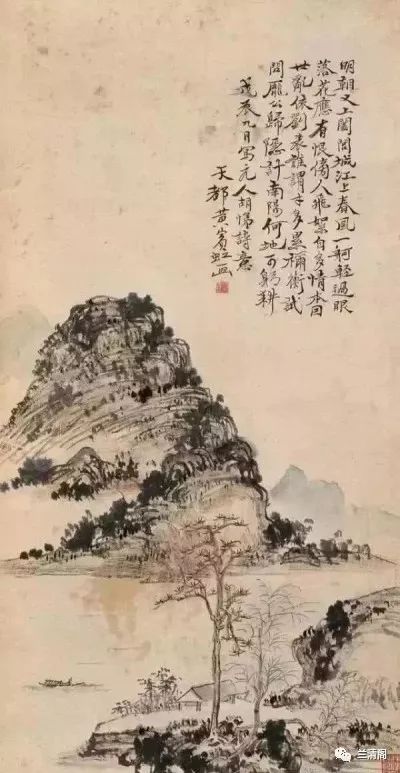 明朝又上闔閭城江上春風一舸輕過眼
落花應有恨傷人飛絮自多情本因
世亂依劉表誰謂才多累禰衡試
問龐公歸隱計南陽何地可躬耕
戊辰九月寫元人胡詩意
天都黃賓虹画
兰清阁